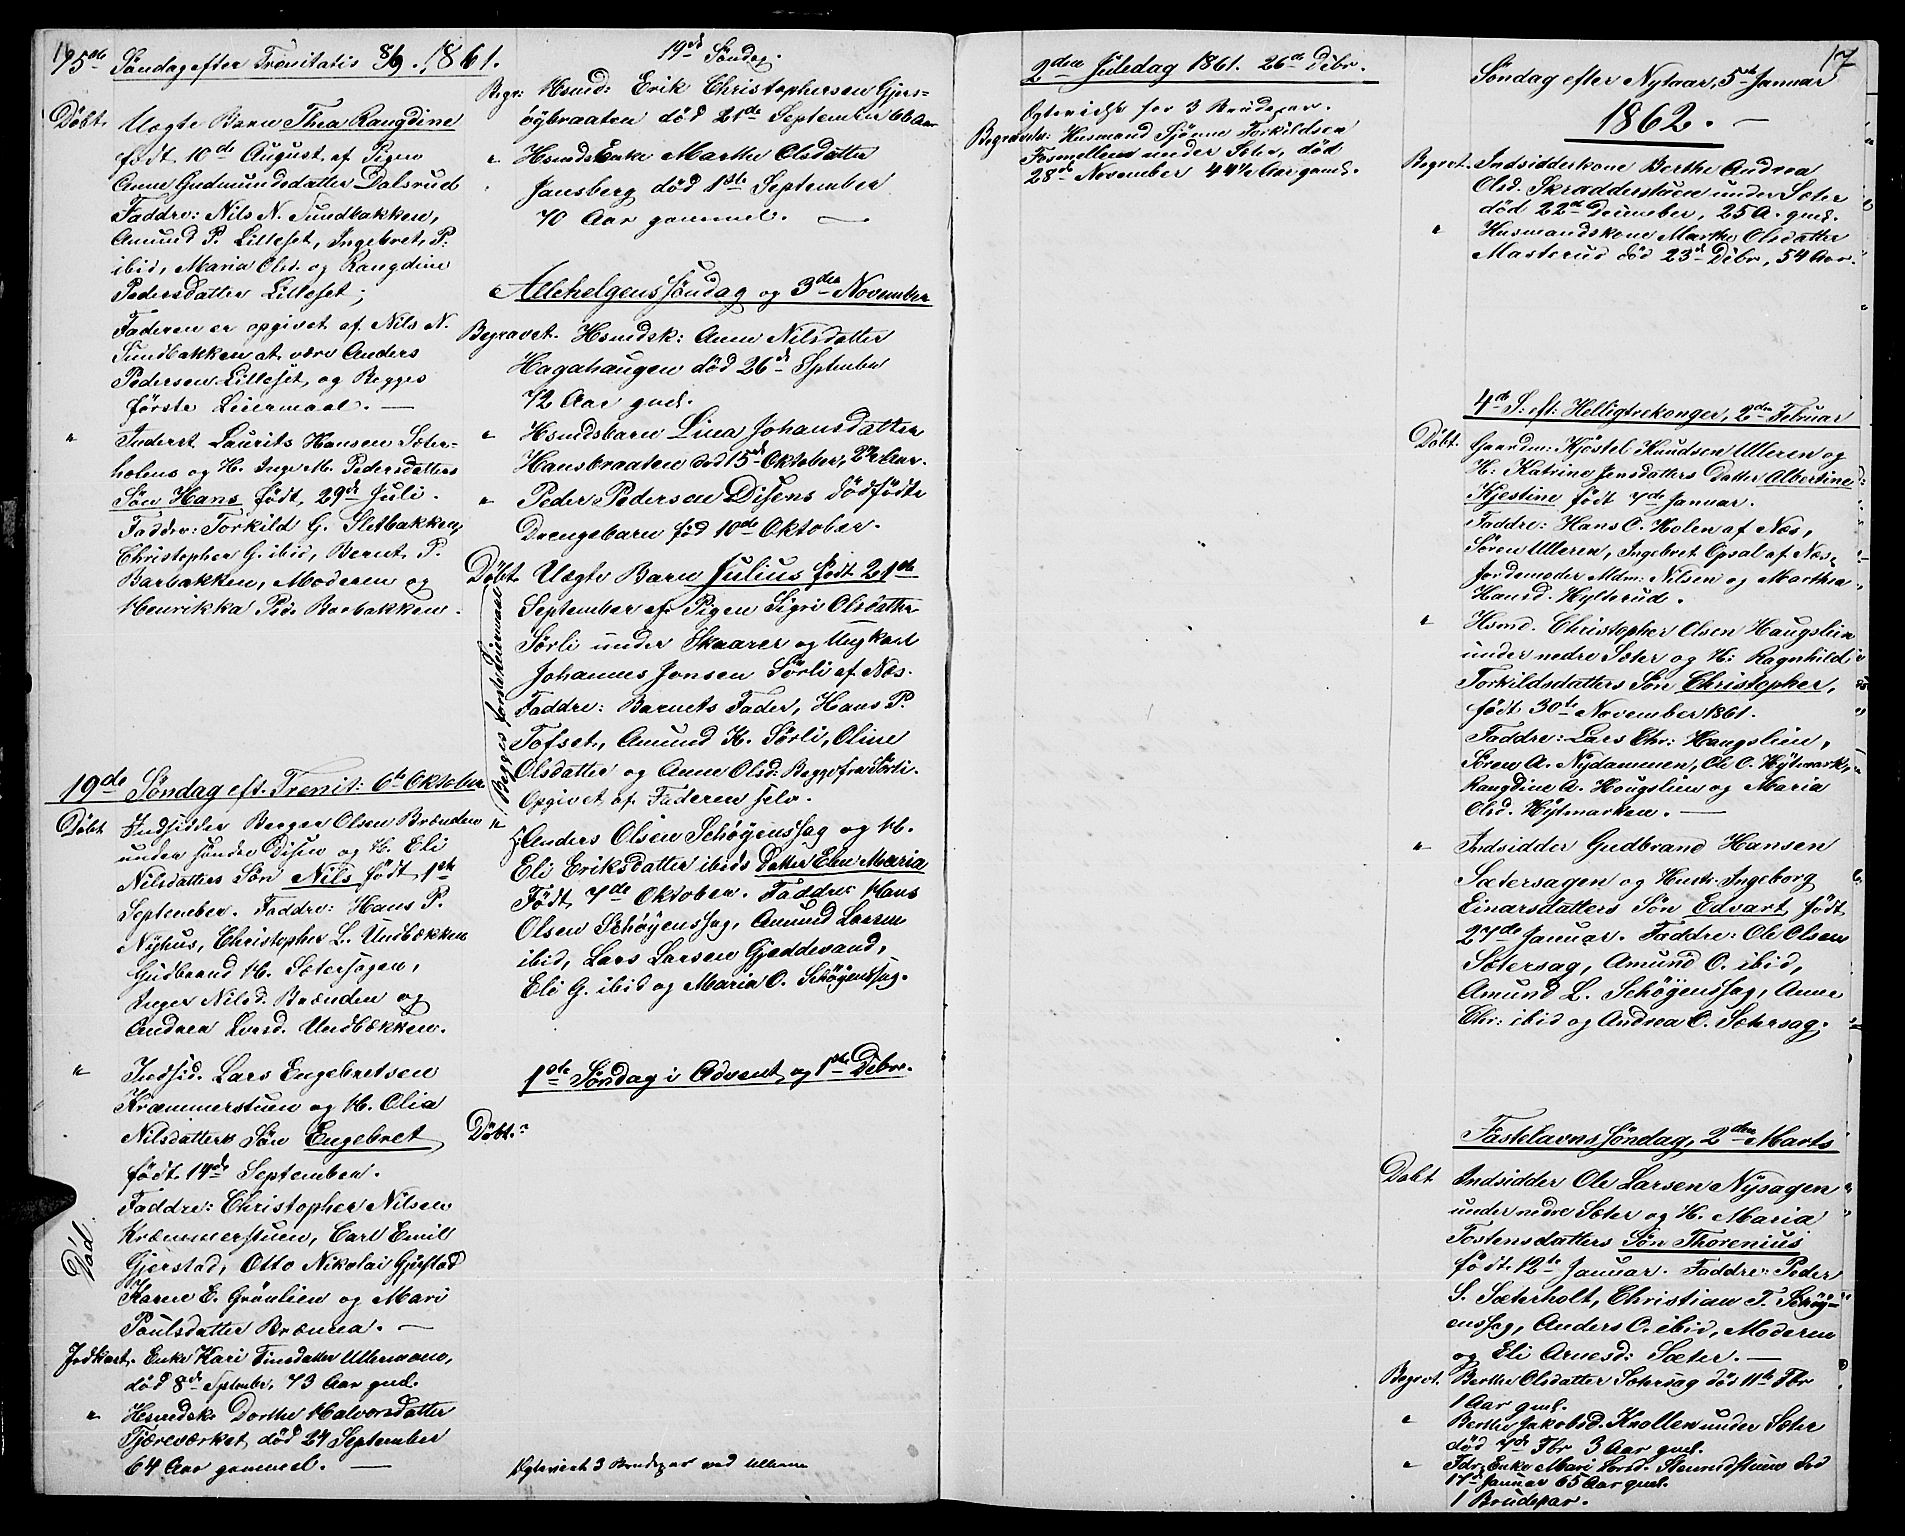 16
15de Søndag efter Trinitatis 8/9. 1861.
Døbt. Uægte Barn Thea Rangdine
født 10de August af Pigen
Anne Gudmundsdatter Dalsrud
Faddre: Nils N. Sundbakken,
Amund P. Lilleset, Ingebret P.
ibid, Maria Olsd. og Rangdine
Pedersdatter Lilleset;
Faderen er opgivet af Nils N.
Sundbakken at være Anders
Pedersen Lilleset, og Begges
første Leiermaal. —
" Inderst Laurits Hansen Sæter-
holens og H. Inge M. Pedersdatters
Søn Hans født 29de Juli.
Faddre: Torkild G. Sletbakken,
Christopher G. ibid, Bernt P.
Barbakken, Moderen og
Henrikka Peds. Barbakken.
19de Søndag eft. Trenit: 6te Oktober
Døbt Indsidder Berger Olsen Brænden
under søndre Disen og H. Eli
Nilsdatters Søn Nils født 1ste
September. Faddre: Hans P.
Nyhus, Christopher L. Undbækken
Gudbrand H. Sætersagen,
Inger Nilsd. Brænden og
Andrea Larsd. Undbækken.
" Indsid. Lars Engebretsen
Kræmmerstuen og H. Olia
Nilsdatters Søn Engebret
født 14de September.
Faddre: Christopher Nilsen
Kræmmerstuen, Carl Emil
Gjerstad, Otto Nikolai Gjerstad
Karen E. Grønlien og Mari
Poulsdatter Brænna. —
Død.
Jordkast. Enke Kari Finsdatter Ullernmoen,
død 8de September, 73 Aar gml.
" Hsmdske Dorthe Halvorsdatter
Tjæreværket død 24 September
64 Aar gammel. —
19de Søndag.
Begr: Hsmd: Erik Christophersen Gjers-
øybraaten død 21de September 66 Aar
" HsmdsEnke Marthe Olsdatter
Jansberg død 1ste September
70 Aar gammel. —
Allehelgenssøndag og 3die November
Begravet. Hsmdsk: Anne Nilsdatter
Hagahaugen død 26de Septmber
72 Aar gml.
" Hsmdsbarn Lina Johansdatter
Hansbraaten død 15de Oktober, 2 1/2 Aar.
" Peder Pedersen Disens dødfødte
Drengebarn fød 10de Oktober.
Døbt Uægte Barn Julius født 21de
September af Pigen Sigri Olsdatter
Sørli under Skaarer og Ungkarl
Johannes Jonsen Sørli af Næs.
Faddre: Barnets Fader, Hans P.
Tofset, Amund K. Sørli, Oline
Olsdatter og Anne Olsd: Begge fra Sørli.
Opgivet af Faderen selv.
Begges første Leiermaal
" Anders Olsen Schøyenssag og H.
Eli Eriksdatter ibids Datter Elen Maria
Født 7de Oktober. Faddre Hans
Olsen Schøyenssag, Amund Larsen
ibid, Lars Larsen Gjeddevand,
Eli G. ibid og Maria O. Schøyenssag.
1ste Søndag i Advent og 1ste Debr.
Døbt. "
Ægteviet 3 Brudepar ved Ullern
2den Juledag 1861. 26de Debr.
Ægtevidst for 3 Brudepar.
Begravelse: Husmand Sjønne Torkildsen
Fosmellem under Sæter, død
28de November 44 1/2 Aar gaml.
17
Søndag efter Nytaar, 5te Januar
1862. —
Begrvt. Indsidderkone Berthe Andrea
Olsd. Skrædderstuen under Sæter
død 22de Desember, 25 A. gml.
" Husmandskone Marthe Olsdatter
Masterud død 23de Debr, 54 Aar.
4de S: eft: Helligtrekonger, 2den Februar
Døbt. Gaardm: Kjøstel Knudsen Ulleren og
H: Katrine Jensdatters Datter Albertine
Kjestine født 7de Januar.
Faddre: Hans O. Holen af Næs,
Søren Ulleren, Ingebret Opsal af Næs,
Jordemoder Mdm: Nilsen og Marthea
Hansd. Hylterud.
" Hsmd. Christopher Olsen Haugslien
under nedre Sæter og H: Ragnhild
Torkildsdatters Søn Christopher,
født 30te November 1861.
Faddre: Lars Chr: Haugslien,
Søren A. Nydammen, Ole O. Hytmark,
Rangdine A. Hougslien og Maria
Olsd. Hytmarken. —
" Indsidder Gudbrand Hansen
Sætersagen og Hustr. Ingeborg
Einarsdatters Søn Edvart født
27de Januar. Faddre: Ole Olsen
Sætersag, Amund O. ibid,
Amund L. Schøyenssag, Anne
Chr: ibid og Andrea O. Sætersag.
Fastelavnssøndag, 2den Marts
Døbt Indsidder Ole Larsen Nysagen
under nedre Sæter og H. Maria
Tostensdatters Søn Thorenius
født 12te Januar. Faddre: Peder
S. Sæterholt, Christian T. Schøy-
enssag, Anders O. ibid, Moderen
og Eli Arnesd: Sæter. —
Begrvt. Berthe Olsdatter Sætersag død 11te Fbr
1 Aar gml.
" Berthe Jakobsd. Knollen under Sæter
død 7de Fbr 3 Aar gml.
" Fdr: Enke Mari Larsd. Stensrudstuen død
17de Januar 65 Aar gml.
1 Brudepar.